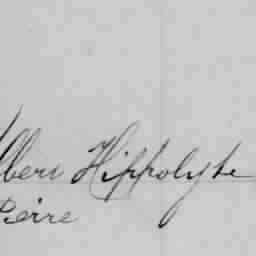 Albert Hippolyte
Pierre